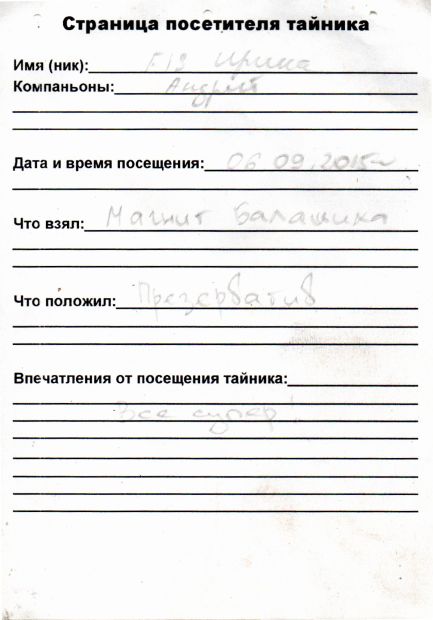 Страница посетителя тайника
Имя (ник): Ирина
Компаньоны: Андрей
Дата и время посещения: 06 09.2015г
Что взял: Магнит Балашиха
Что положил: Презерватив
Впечатления от посещения тайника:
Все супер!